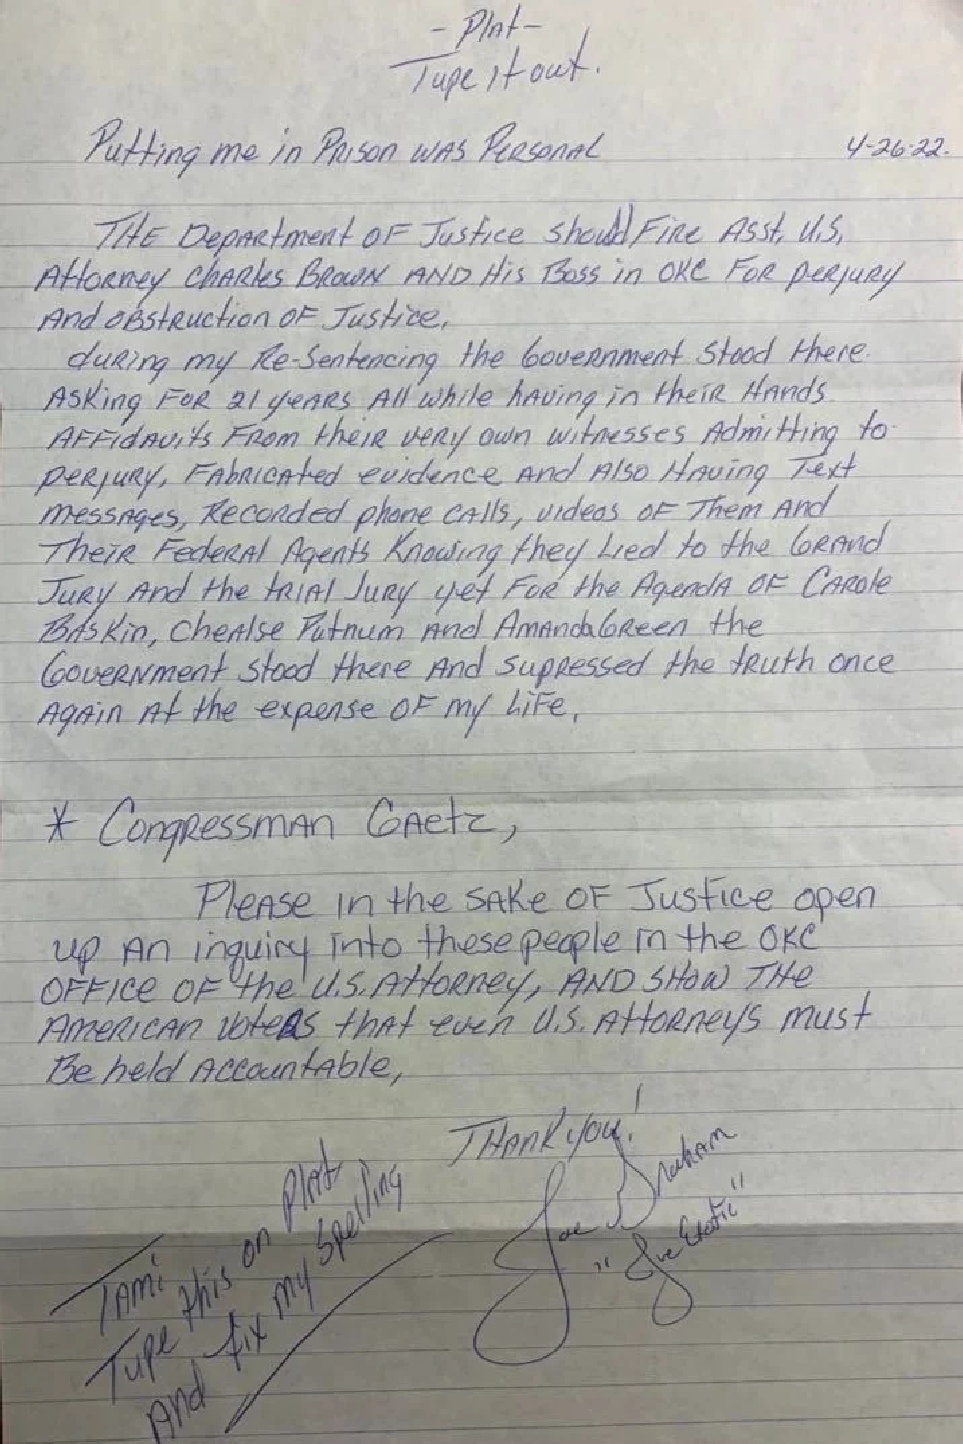 - PlNt -
Type it out.
Putting me in Prison was Personal 4-26-22.
THE Department OF Justice should Fire Asst. U.S,
Attorney Charles Brown AND His Boss in OKC For perjury
And obstruction OF Justice,
during my Re-Sentencing the Government Stood there
Asking For 21 years All while having in their Hands
AFFidavits From their very own witnesses Admitting to
perjury, Fabricated evidence and Also Having Text
messages, Recorded phone calls, videos OF Them And
Their Federal Agents Knowing they Lied to the Grand
Jury And the trial Jury yet For the Agenda OF Carole
Baskin, Chealse Putnum and Amanda Green the
Government Stood there And Suppressed the truth once
Again At the expense OF my LiFe,
* Congressman Gaetz,
Please in the sake OF Justice open
up An inquiry into these people in the OKC
OFFice OF the U.S. Attorney, AND SHOW THE
American voters that even U.S. Attorneys must
Be held Accountable,
THANK you!
Joe Graham
"Joe Exotic"
Tami
Type this on PlNt
And fix my Spelling